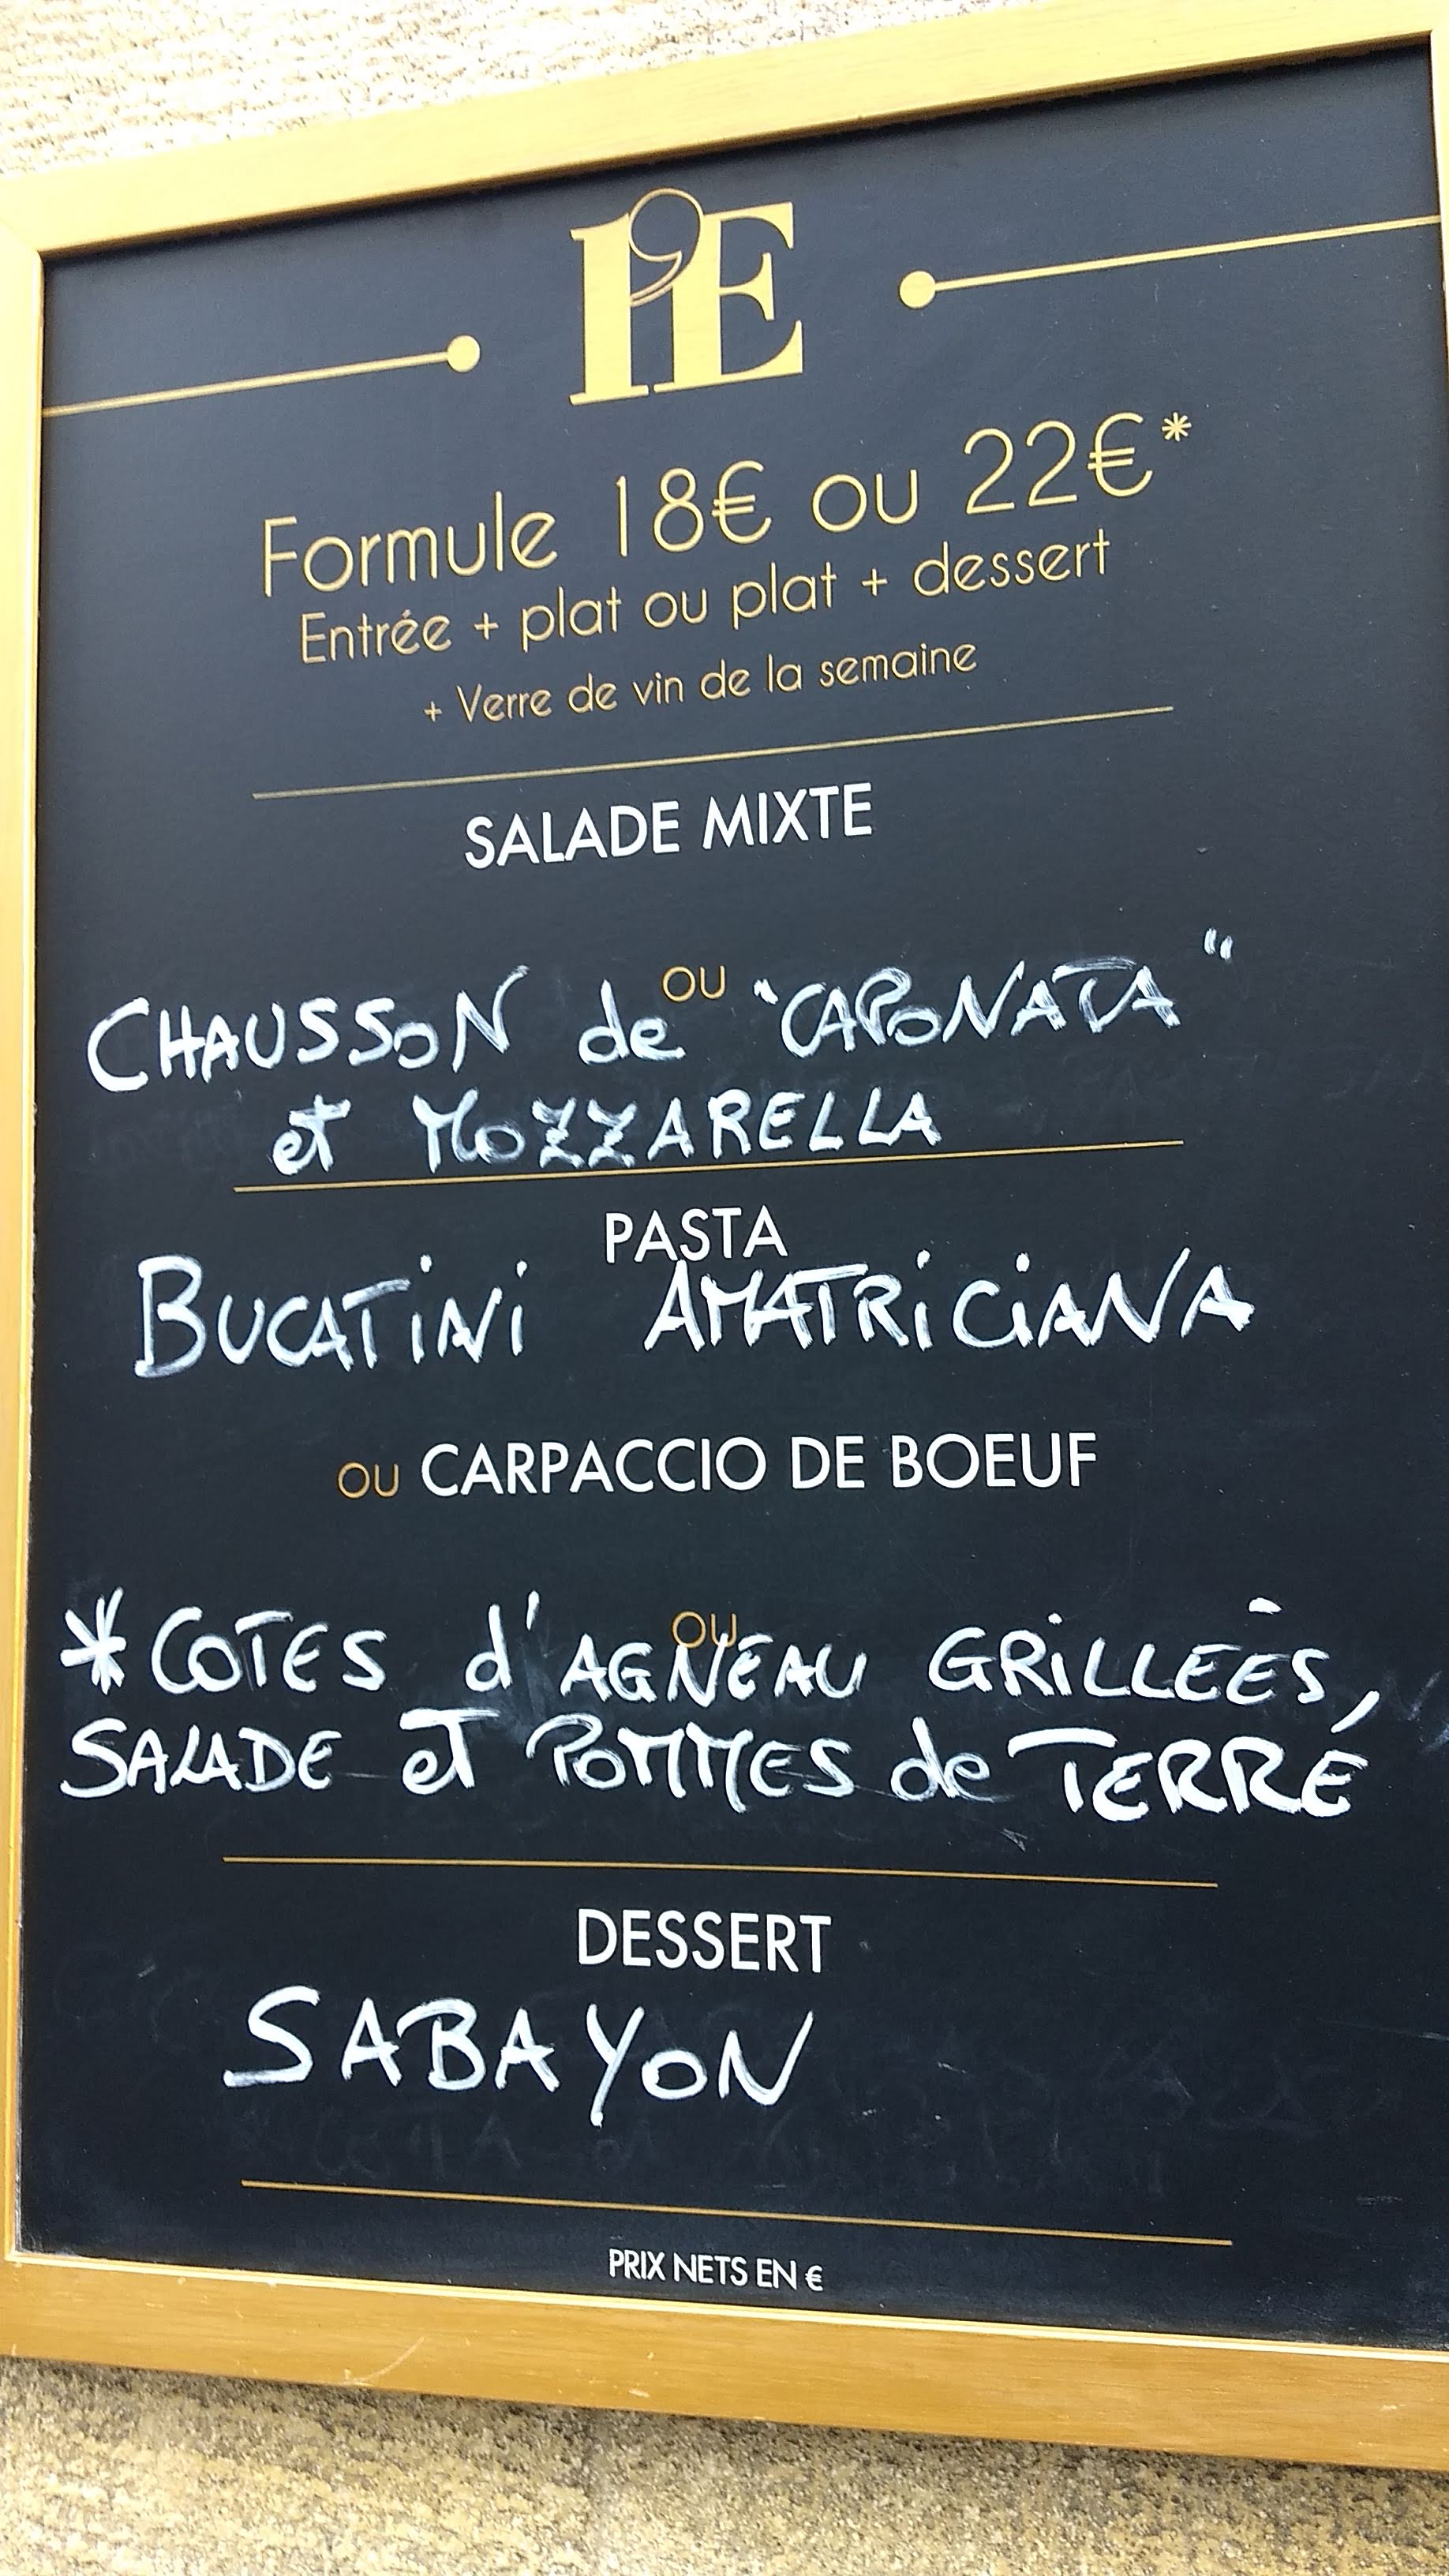 l'E
Formule 18€ ou 22€*
Entrée + plat ou plat + dessert
+ Verre de vin de la semaine
SALADE MIXTE
OU
CHAUSSON de "CAPONATA"
et MOZZARELLA
PASTA
BUCATINI AMATRICIANA
OU CARPACCIO DE BOEUF
OU
*COTES d'AGNEAU GRILLEÉS,
SALADE et POMMES de TERRE
DESSERT
SABAYON
PRIX NETS EN €